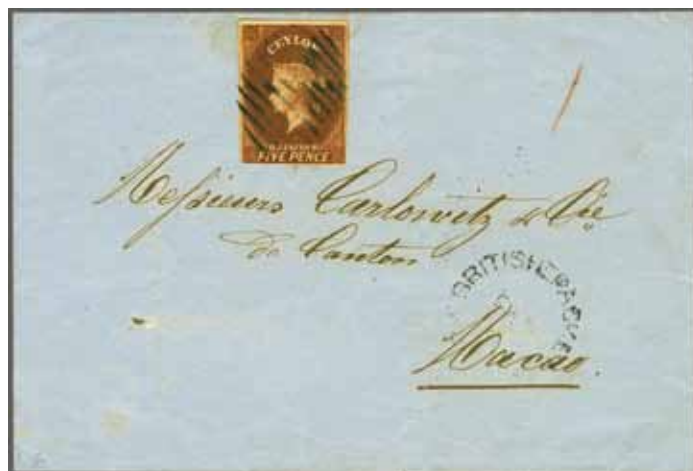 CEYLON
FIVE PENCE
Messieurs Carlowitz & Cie
de Canton
BRITISH
Macao.